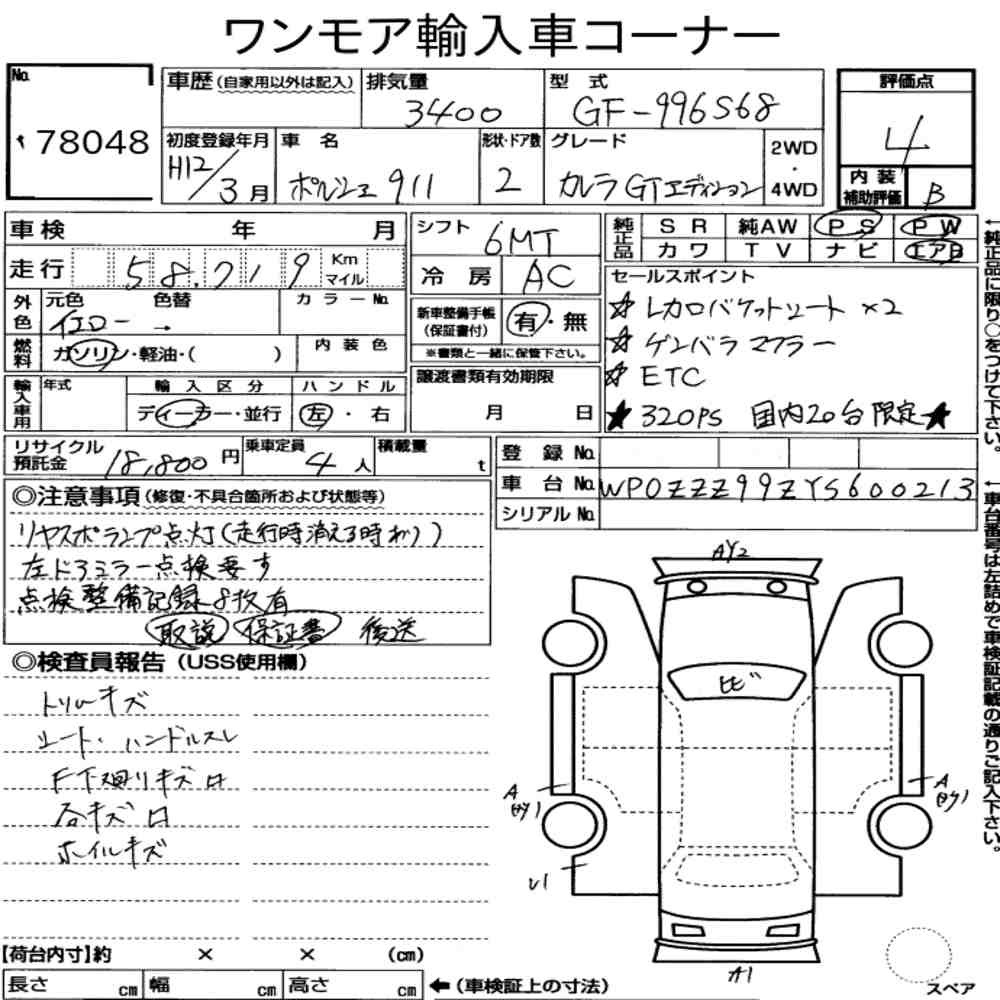 ワンモア輸入車コーナー
No.
78048
車歴(自家用以外は記入)
排気量
3400
型 式
GF-996S68
評価点
4
初度登録年月
H12/3月
車 名
ポルシェ 911
形状・ドア数
2
グレード
カレラ GTエディション
2WD
・
4WD
内装
補助評価
B
車検 年 月
シフト
6MT
純正品
S R 純AW P S P W
カワ T V ナビ エアB
走行 58,719 Km
マイル
冷 房
AC
セールスポイント
☆ レカロバケットシート ×2
☆ ゲンバラ マフラー
☆ ETC
★ 320PS 国内20台限定★
外色
元色 色替 カラーNo.
イエロー →
新車整備手帳
(保証書付)
有・無
※書類と一緒に保管下さい。
燃料
ガソリン・軽油・( )
内 装 色
輸入車用
年式
輸 入 区 分
ハ ン ド ル
ディーラー・並行
左 ・ 右
譲渡書類有効期限
月 日
リサイクル
預託金
18,800円
乗車定員
4人
積載量
t
登 録 No.
車 台 No.
WP0ZZZ99ZYS600213
シリアル No.
←純正品に限り○をつけて下さい。
←車台番号は左詰めで車検証記載の通りご記入下さい。
◎注意事項(修復・不具合箇所および状態等)
リヤスポランプ点灯(走行時消える時有り)
左ドアミラー点検要す
点検整備記録8枚有
取説 保証書 後送
◎検査員報告(USS使用欄)
トリムキズ
シート・ハンドルスレ
F下廻りキズ有
谷キズ有
ホイルキズ
AY2
ヒビ
A
A
A1
スペア
【荷台内寸】約 × × (cm)
長さ cm 幅 cm 高さ cm
←(車検証上の寸法)